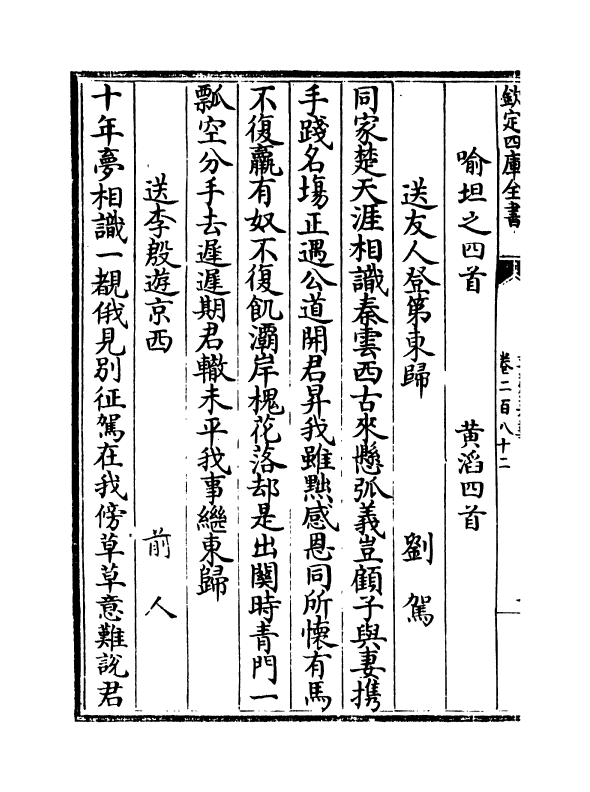 欽定四庫全書
卷二百八十二
喻坦之四首　黃滔四首
送友人登第東歸　劉駕
同家楚天涯相識秦雲西古來懸弧義豈顧子與妻携
手踐名塲正遇公道開君昇我雖黜感恩同所懷有馬
不復羸有奴不復飢灞岸槐花落却是出關時青門一
瓢空分手去遲遲期君轍未平我事繼東歸
送李殷遊京西　前人
十年夢相識一覩俄見别征駕在我傍草草意難說君